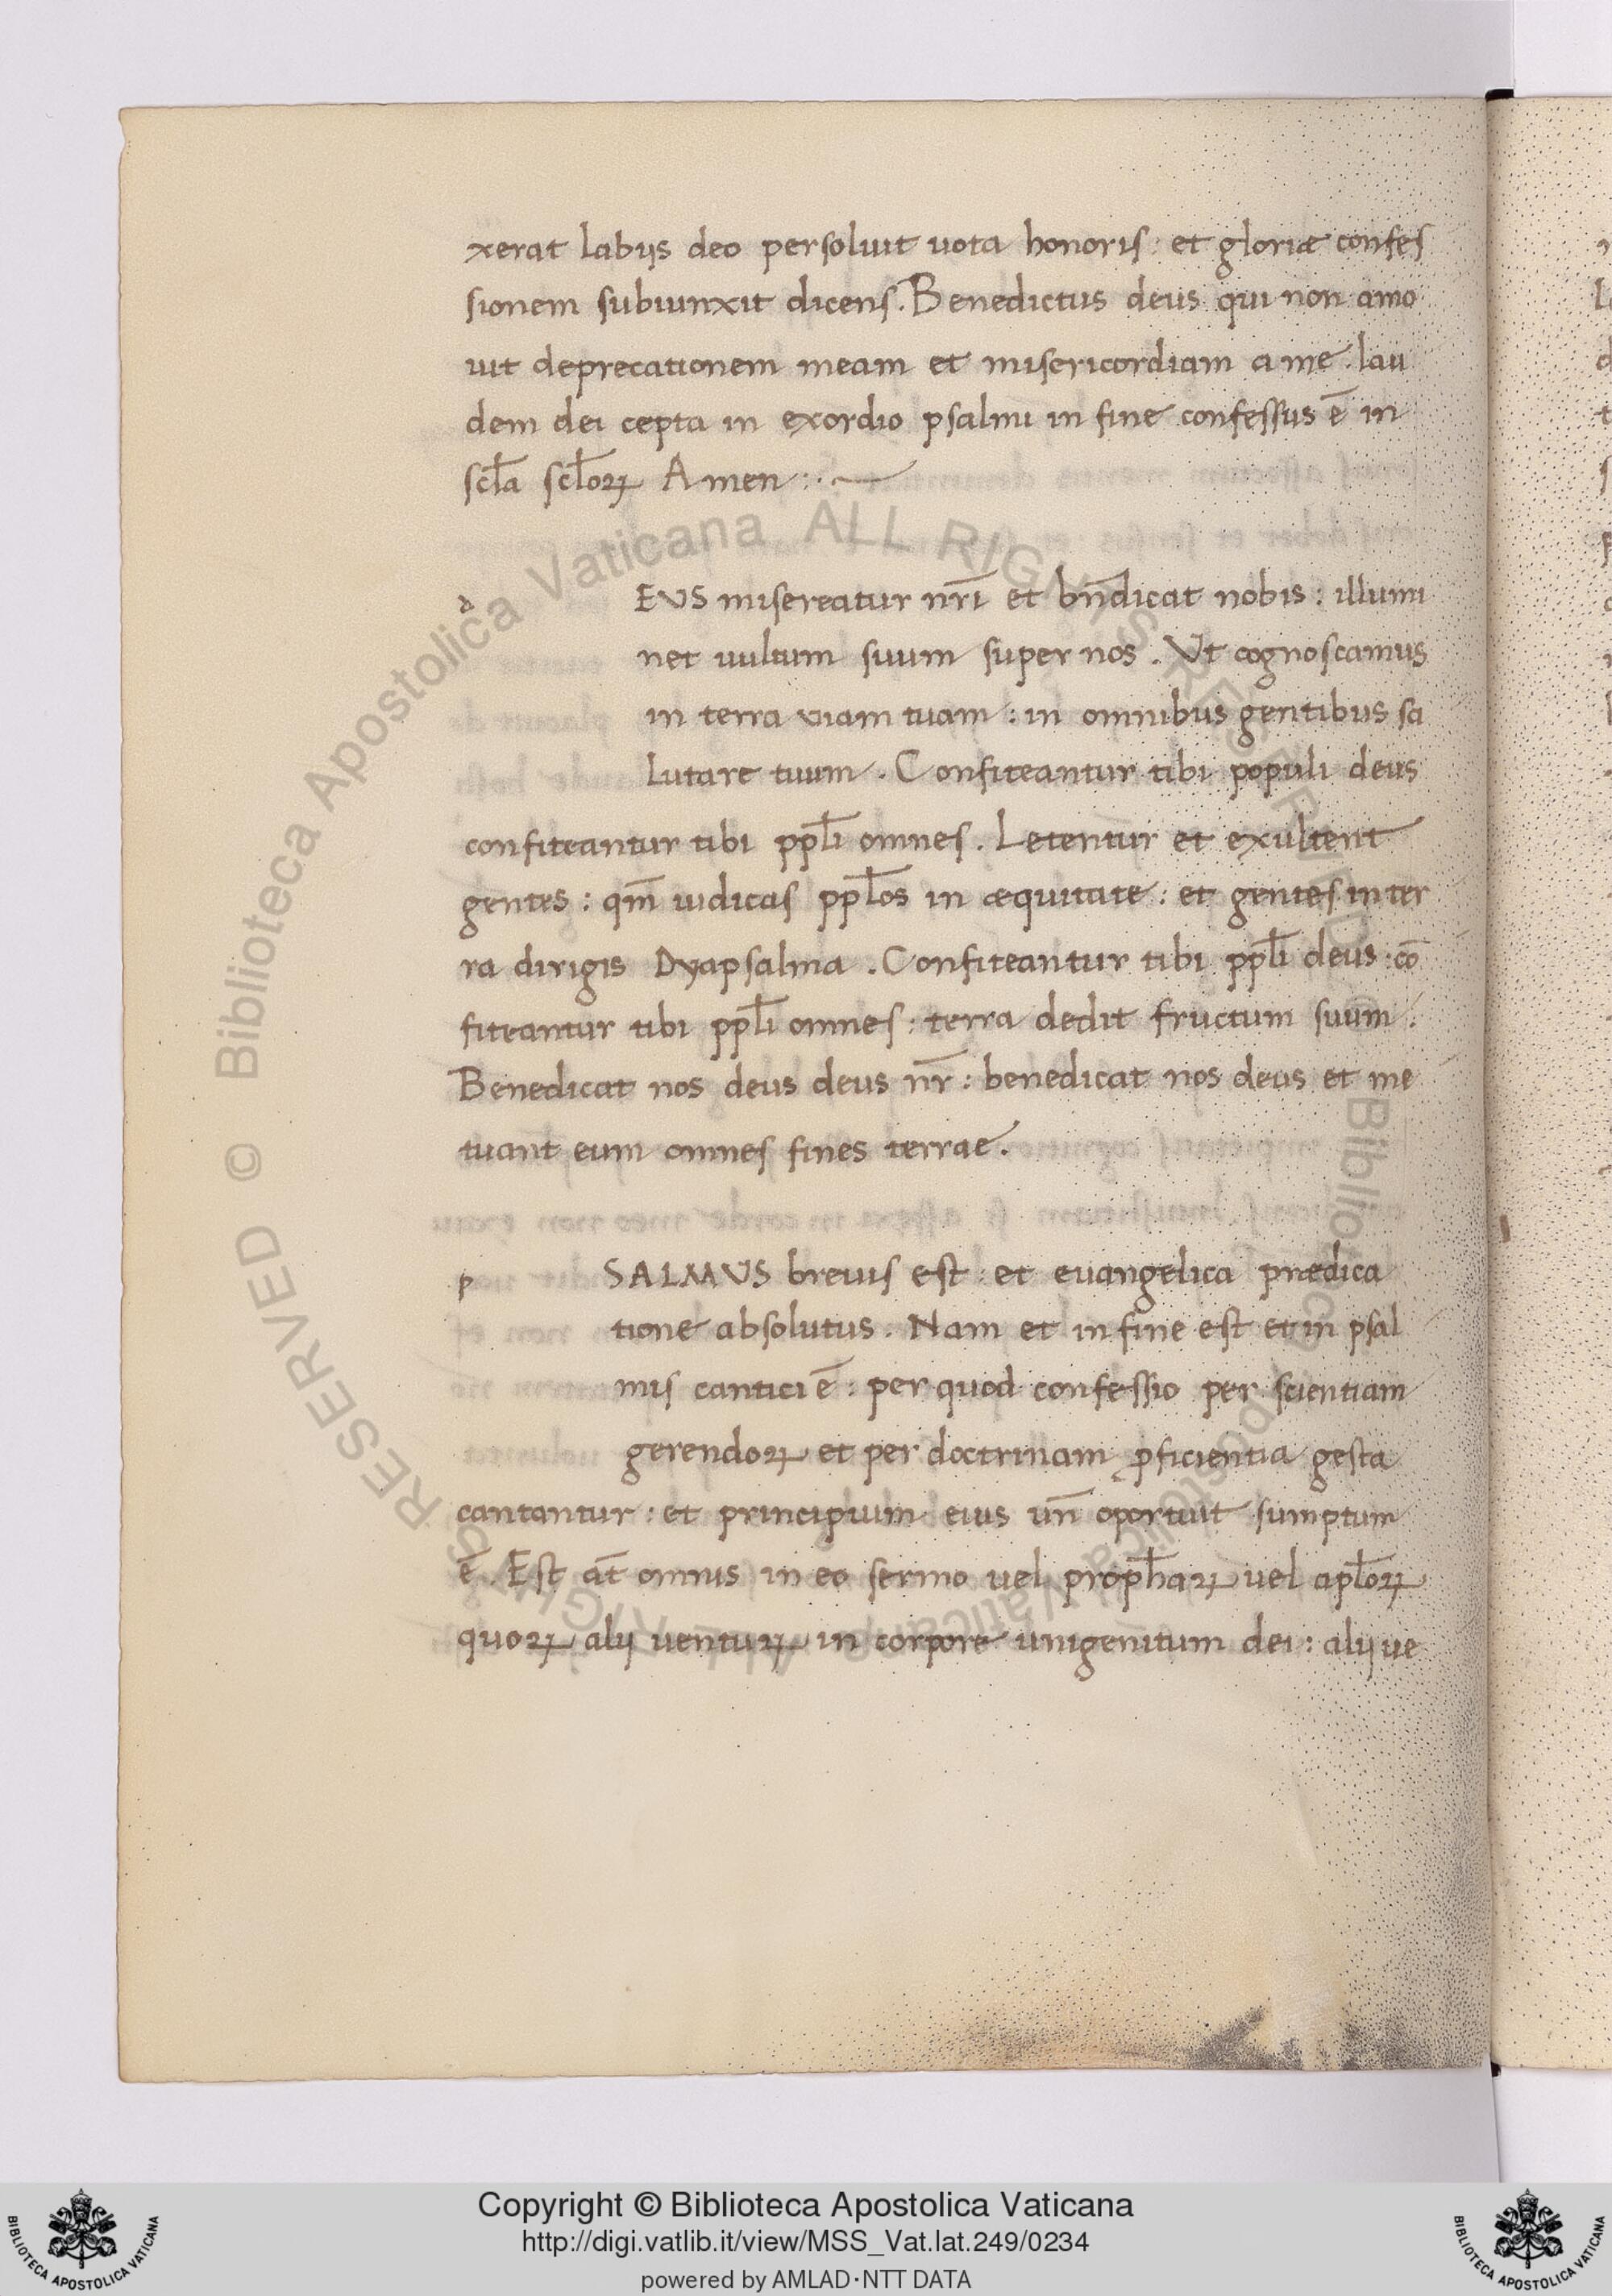 xerat labijs deo persoluit uota honoris : et gloriæ confes
sionem subiunxit dicens . Benedictus deus qui non amo
uit deprecationem meam et misericordiam a me . lau
dem dei cepta in exordio psalmi in fine confessus ē in
scl̄a scl̄oꝝ Amen : ·
d EVS misereatur nr̄i et bn̄dicat nobis : illumi
net uultum suum super nos . Vt cognoscamus
in terra uiam tuam : in omnibus gentibus sa
lutare tuum . Confiteantur tibi populi deus
confiteantur tibi ppl̄i omnes . Letentur et exultent
gentes : qm̄ iudicas ppl̄os in æquitate : et gentes in ter
ra dirigis Dyapsalma . Confiteantur tibi ppl̄i deus : cō
fiteantur tibi ppl̄i omnes : terra dedit fructum suum .
Benedicat nos deus deus nr̄ : benedicat nos deus et me
tuant eum omnes fines terrae .
p SALMVS breuis est : et euangelica prædica
tione absolutus . Nam et in fine est et in psal
mis cantici ē : per quod confessio per scientiam
gerendoꝝ et per doctrinam ꝓficientia gesta
cantantur : et principium eius un̄ oportuit sumptum
ē . Est at̄ omnis in eo sermo uel proph̄aꝝ uel apl̄oꝝ
quoꝝ alij uentuꝝ in corpore unigenitum dei : alij ue
© Biblioteca Apostolica Vaticana ALL RIGHTS RESERVED © Biblioteca Apostolica Vaticana ALL RIGHTS RESERVED
Copyright © Biblioteca Apostolica Vaticana
http://digi.vatlib.it/view/MSS_Vat.lat.249/0234
powered by AMLAD·NTT DATA
BIBLIOTECA APOSTOLICA VATICANA
BIBLIOTECA APOSTOLICA VATICANA